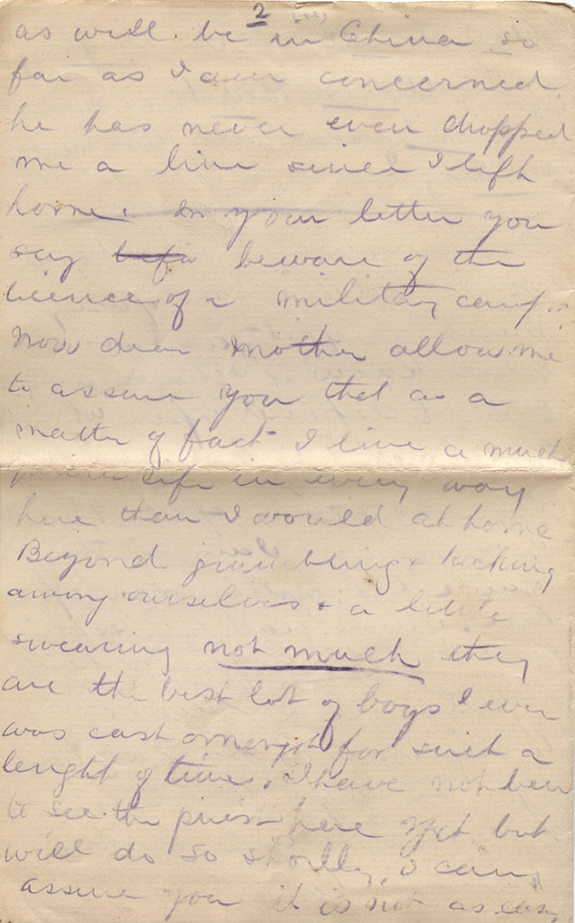 2
as will be in China so
far as I am concerned
he has never even dropped
me a line since I left
home. In your letter you
say beware of the
licence of a military camp.
Now dear Mother allow me
to assure you that as a
matter of fact I live a much
life in every way
here than I would at home
Beyond grumbling & kicking
among ourselves & a little
swearing not much they
are the best lot of boys I ever
was cast amongst for such a
lenght of time. I have not been
to see the priest here yet but
will do so shortly, I can
assure you it is not as easy